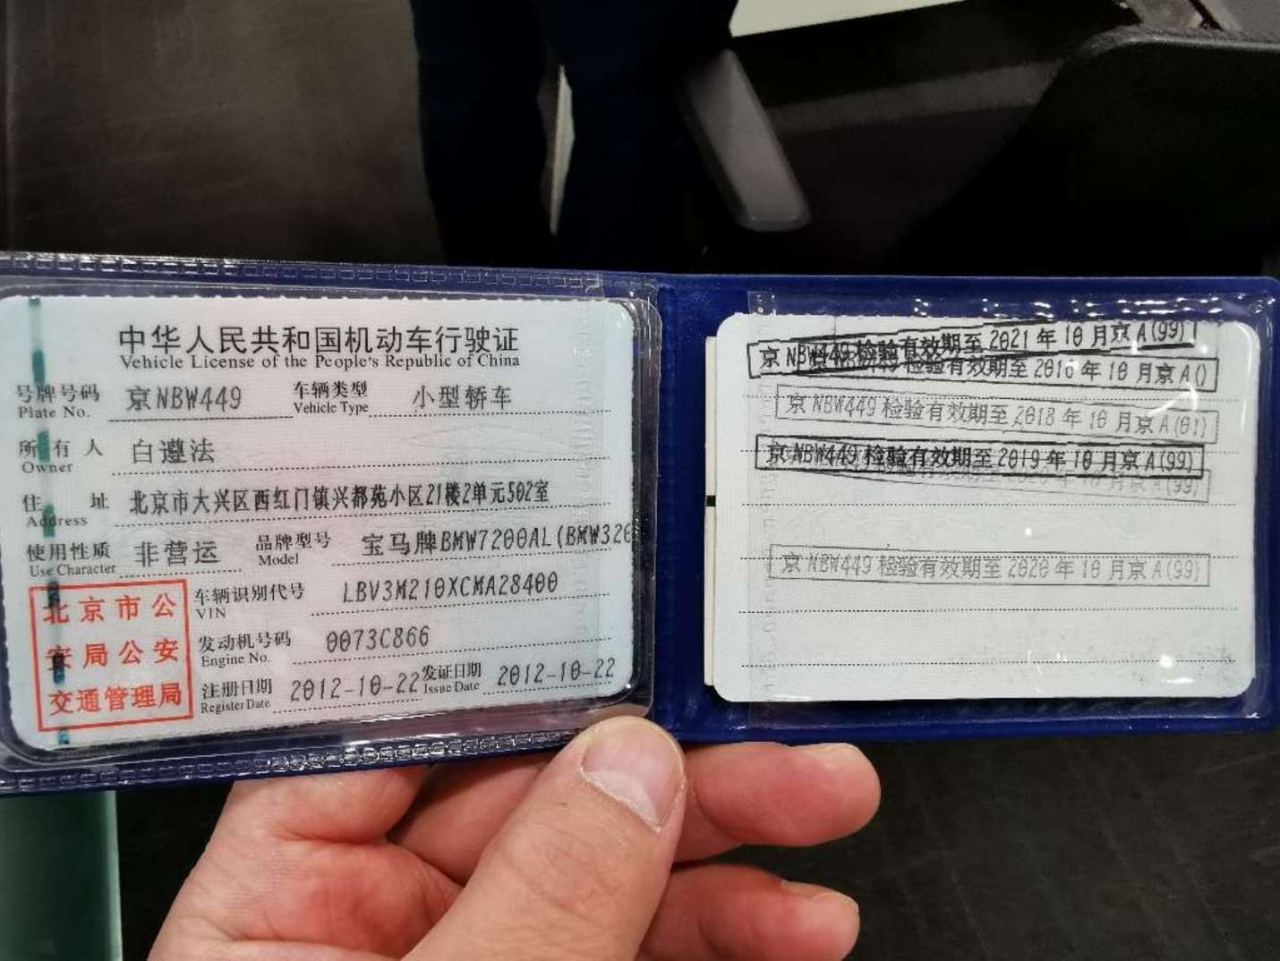 中华人民共和国机动车行驶证
Vehicle License of the People's Republic of China
号牌号码 京NBW449 车辆类型 小型轿车
Plate No. Vehicle Type
所有人 白遵法
Owner
住址 北京市大兴区西红门镇兴都苑小区21楼2单元502室
Address
使用性质 非营运 品牌型号 宝马牌BMW7200AL(BMW320
Use Character Model
车辆识别代号 LBV3M210XCMA28400
VIN
发动机号码 0073C866
Engine No.
注册日期 2012-10-22 发证日期 2012-10-22
Register Date Issue Date
北京市公
安局公安
交通管理局
京NBW449 检验有效期至 2021 年 10 月京A(99)
检验有效期至 2016 年 10 月京A()
京NBW449 检验有效期至 2018 年 10 月京A(01)
京NBW449 检验有效期至 2019 年 10 月京A(99)
(99)
京NBW449 检验有效期至 2020 年 10 月京A(99)